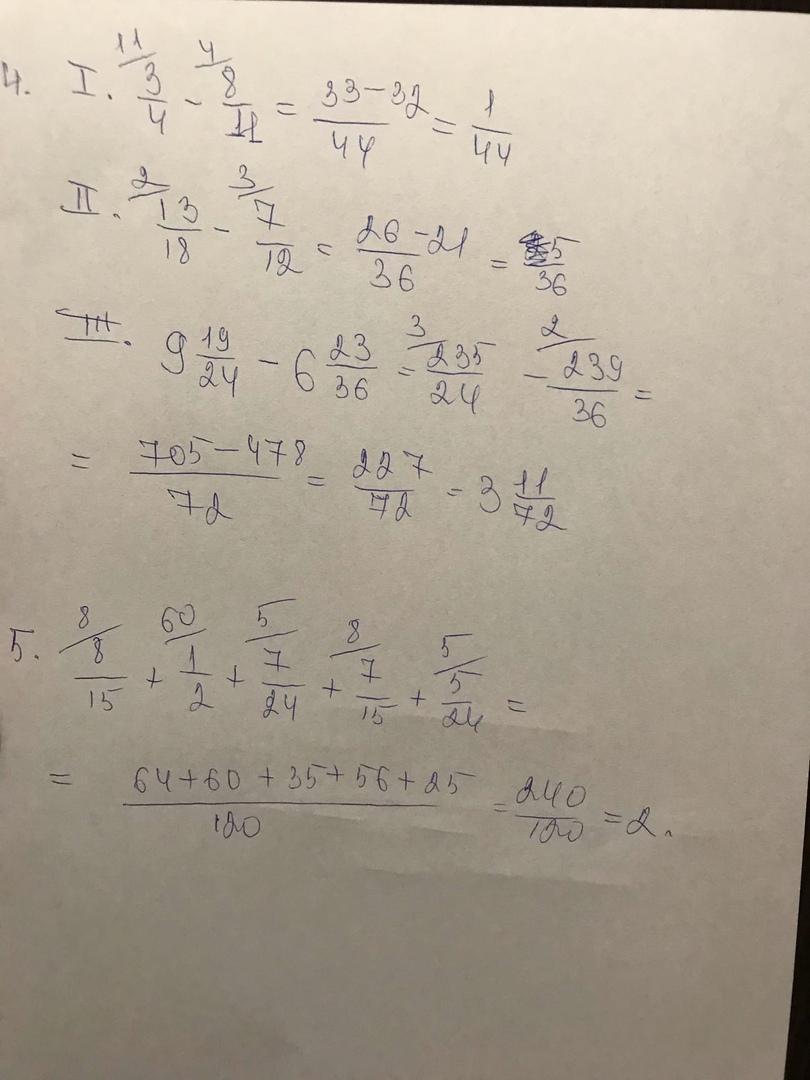 4. I. 11/ 3/4 - 4/ 8/11 = 33-32/44 = 1/44
II. 2/ 13/18 - 3/ 7/12 = 26-21/36 = 5/36
III. 9 19/24 - 6 23/36 = 3/ 235/24 - 2/ 239/36 =
= 705-478/72 = 227/72 = 3 11/72
5. 8/ 8/15 + 60/ 1/2 + 5/ 7/24 + 8/ 7/15 + 5/ 5/24 =
= 64+60+35+56+25/120 = 240/120 = 2.